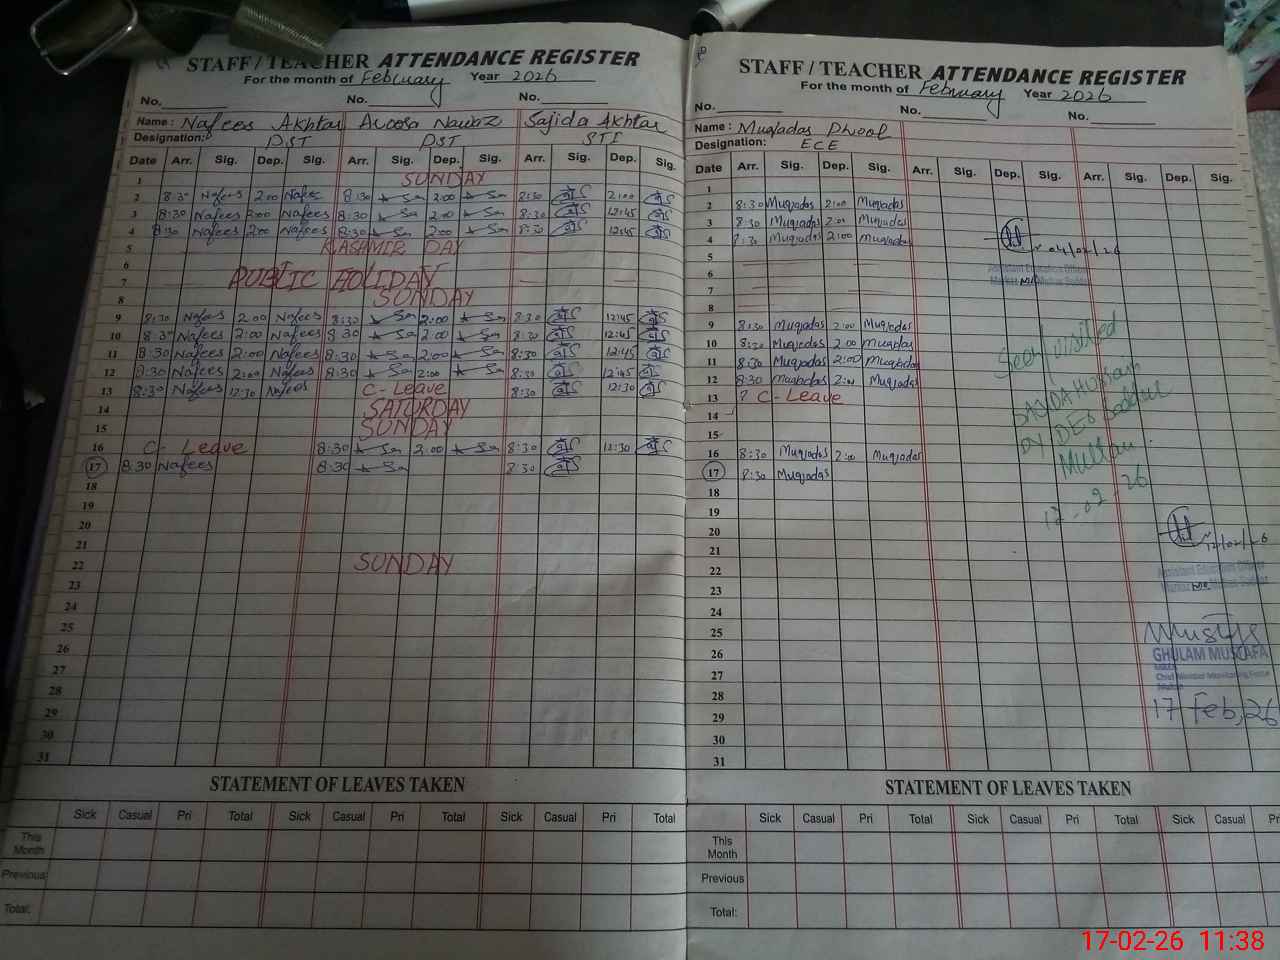 STAFF / TEACHER ATTENDANCE REGISTER
For the month of February Year 2026
No. No. No.
Name : Nafees Akhtar Aroosa Nawaz Sajida Akhtar
Designation: DST DST STI
Date Arr. Sig. Dep. Sig. Arr. Sig. Dep. Sig. Arr. Sig. Dep. Sig.
1 SUNDAY
2 8:30 Nafees 2:00 Nafees 8:30 2:00 8:30 2:00
3 8:30 Nafees 2:00 Nafees 8:30 2:00 8:30 12:45
4 8:30 Nafees 2:00 Nafees 8:30 2:00 8:30 12:45
5 KASHMIR DAY
6
7 PUBLIC HOLIDAY
8 SUNDAY
9 8:30 Nafees 2:00 Nafees 8:30 2:00 8:30 12:45
10 8:30 Nafees 2:00 Nafees 8:30 2:00 8:30 12:45
11 8:30 Nafees 2:00 Nafees 8:30 2:00 8:30 12:45
12 8:30 Nafees 2:00 Nafees 8:30 2:00 8:30 12:45
13 8:30 Nafees 12:30 Nafees C-Leave 8:30 12:30
14 SATURDAY
15 SUNDAY
16 C- Leave 8:30 2:00 8:30 12:30
17 8:30 Nafees 8:30 8:30
18
19
20
21
22 SUNDAY
23
24
25
26
27
28
29
30
31
STATEMENT OF LEAVES TAKEN
Sick Casual Pri Total Sick Casual Pri Total Sick Casual Pri Total
This Month
Previous
Total:
STAFF / TEACHER ATTENDANCE REGISTER
For the month of February Year 2026
No. No. No.
Name : Muqadas Phool
Designation: ECE
Date Arr. Sig. Dep. Sig. Arr. Sig. Dep. Sig. Arr. Sig. Dep. Sig.
1
2 8:30 Muqadas 2:00 Muqadas
3 8:30 Muqadas 2:00 Muqadas
4 8:30 Muqadas 2:00 Muqadas
04/02/26
Assistant Education Officer
5
6
7
8
9 8:30 Muqadas 2:00 Muqadas
10 8:30 Muqadas 2:00 Muqadas
11 8:30 Muqadas 2:00 Muqadas
12 8:30 Muqadas 2:00 Muqadas
13 C-Leave
14
15
16 8:30 Muqadas 2:00 Muqadas
17 8:30 Muqadas
Seen/visited
SAJIDA HUSSAIN
DY DEO
Multan
12-02-26
18
19
20
21
22
23
24
25
26
27
28
29
30
31
12/02/26
Assistant Education Officer
GHULAM MUSTAFA
Chief Minister Monitoring Force
17 Feb, 26
STATEMENT OF LEAVES TAKEN
Sick Casual Pri Total Sick Casual Pri Total Sick Casual Pri
This Month
Previous
Total:
17-02-26 11:38